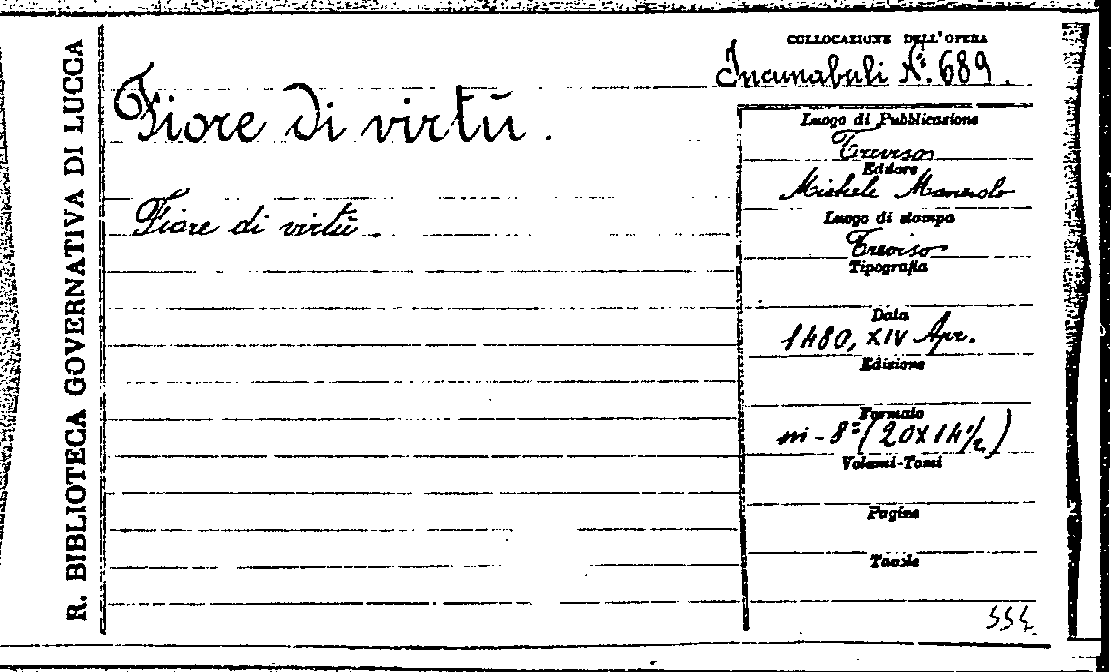 R. BIBLIOTECA GOVERNATIVA DI LUCCA
COLLOCAZIONE DELL'OPERA
Incunabuli N.º 689.
Fiore di virtù.
Fiore di virtù.
Luogo di Pubblicazione
Treviso
Editore
Michele Manzolo
Luogo di stampa
Treviso
Tipografia
Data
1480, XIV Apr.
Edizione
Formato
in-8º (20x14½)
Volumi-Tomi
Pagine
Tavole